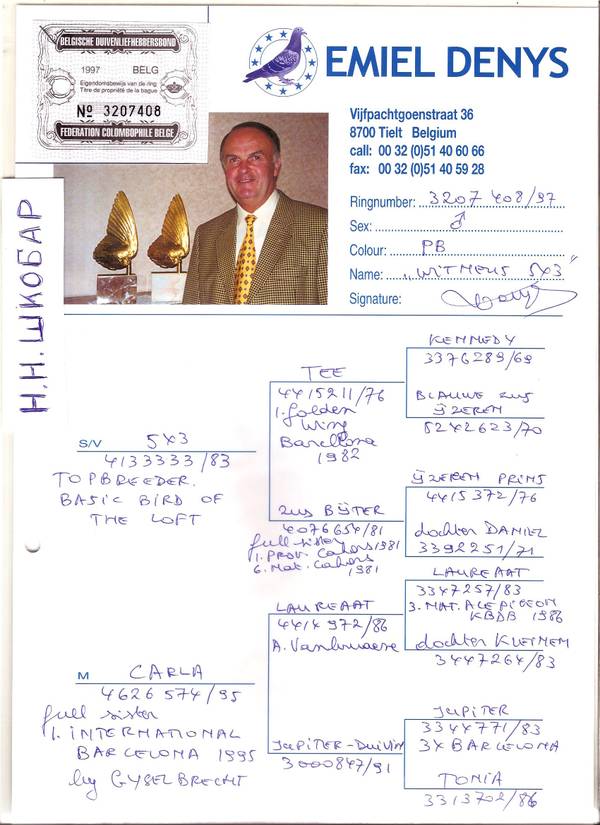 BELGISCHE DUIVENLIEFHEBBERSBOND
1997 BELG
Eigendomsbewijs van de ring
Titre de propriété de la bague
Nº 3207408
FEDERATION COLOMBOPHILE BELGE
EMIEL DENYS
Vijfpachtgoenstraat 36
8700 Tielt Belgium
call: 00 32 (0)51 40 60 66
fax: 00 32 (0)51 40 59 28
Ringnumber: 3207 408/97
Sex: ♂
Colour: PB
Name: „WITMEUS 5x3"
Signature:
Н.Н. ШКОБАР
S/V 5x3
4133333/83
TOPBREEDER.
BASIC BIRD OF
THE LOFT
TEE
4415211/76
1. Golden
Wing
Barcelona
1982
ZUS BIJTER
4076654/81
full sister
1. Prov. Cahors 1981
6. Nat. Cahors
1981
KENNEDY
3376289/69
BLAUWE ZUS
IJZEREN
5242623/70
IJZEREN PRINS
4415372/76
dochter DANIEL
3392251/71
M CARLA
4626574/95
full sister
1. INTERNATIONAL
BARCELONA 1995
by GYSELBRECHT
LAUREAAT
4414972/86
A. Vanhuaere
JUPITER-DUIVIN
3000847/91
LAUREAAT
3347257/83
3. NAT. ACE PIGEON
KBDB 1986
dochter KLEINEM
3447264/83
JUPITER
3344771/83
3x BARCELONA
TONIA
3313702/86